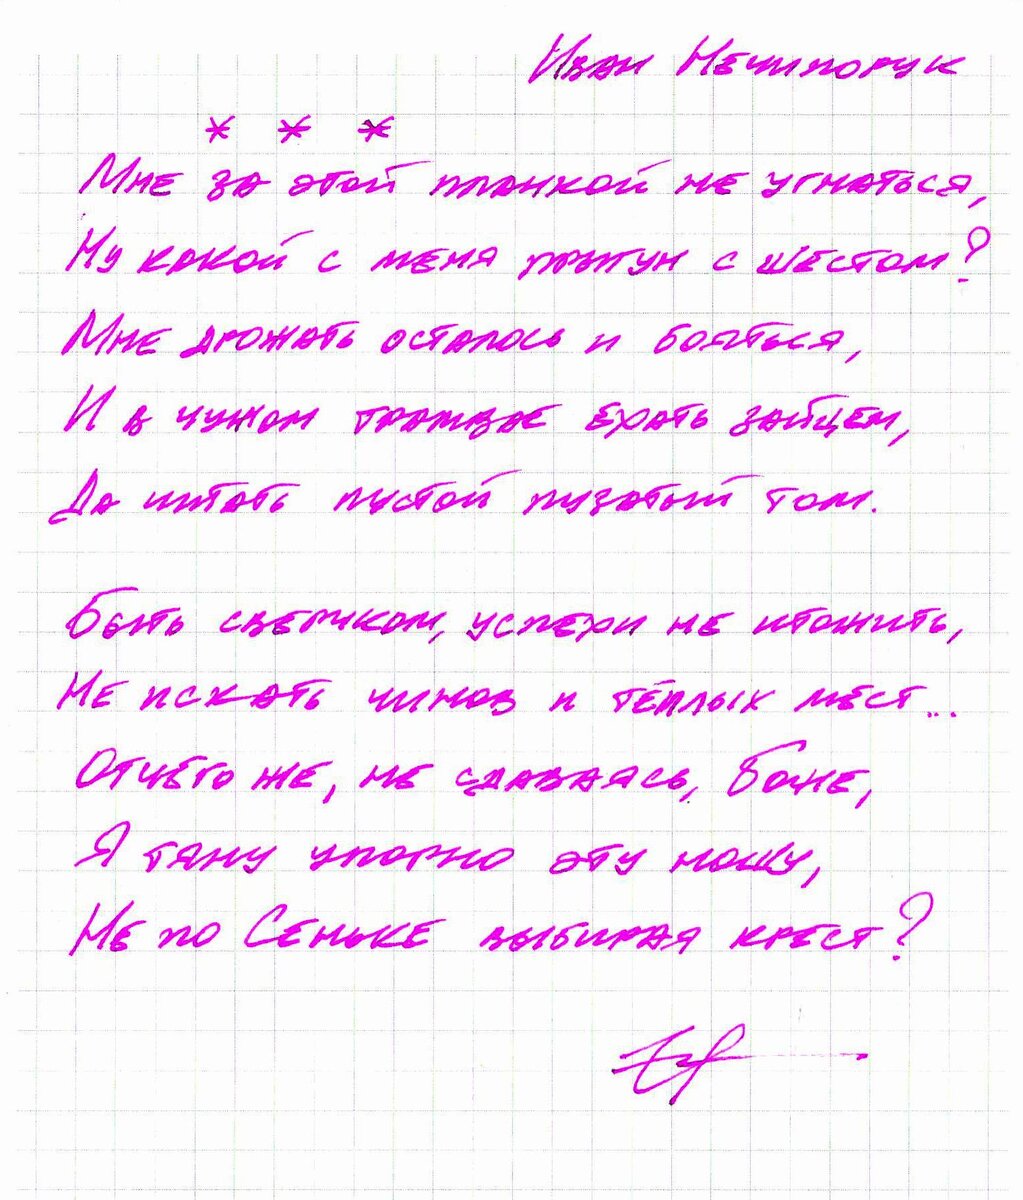 Иван Нечипорук
* * *
Мне за этой планкой не угнаться,
Ну какой с меня прыгун с шестом?
Мне дрожать осталось и бояться,
И в чужом трамвае ехать зайцем,
Да читать пустой пузатый том.
Быть сверчком, успехи не итожить,
Не искать чинов и тёплых мест...
Отчего же, не сдаваясь, Боже,
Я тяну упорно эту ношу,
Не по Сеньке выбирая крест?